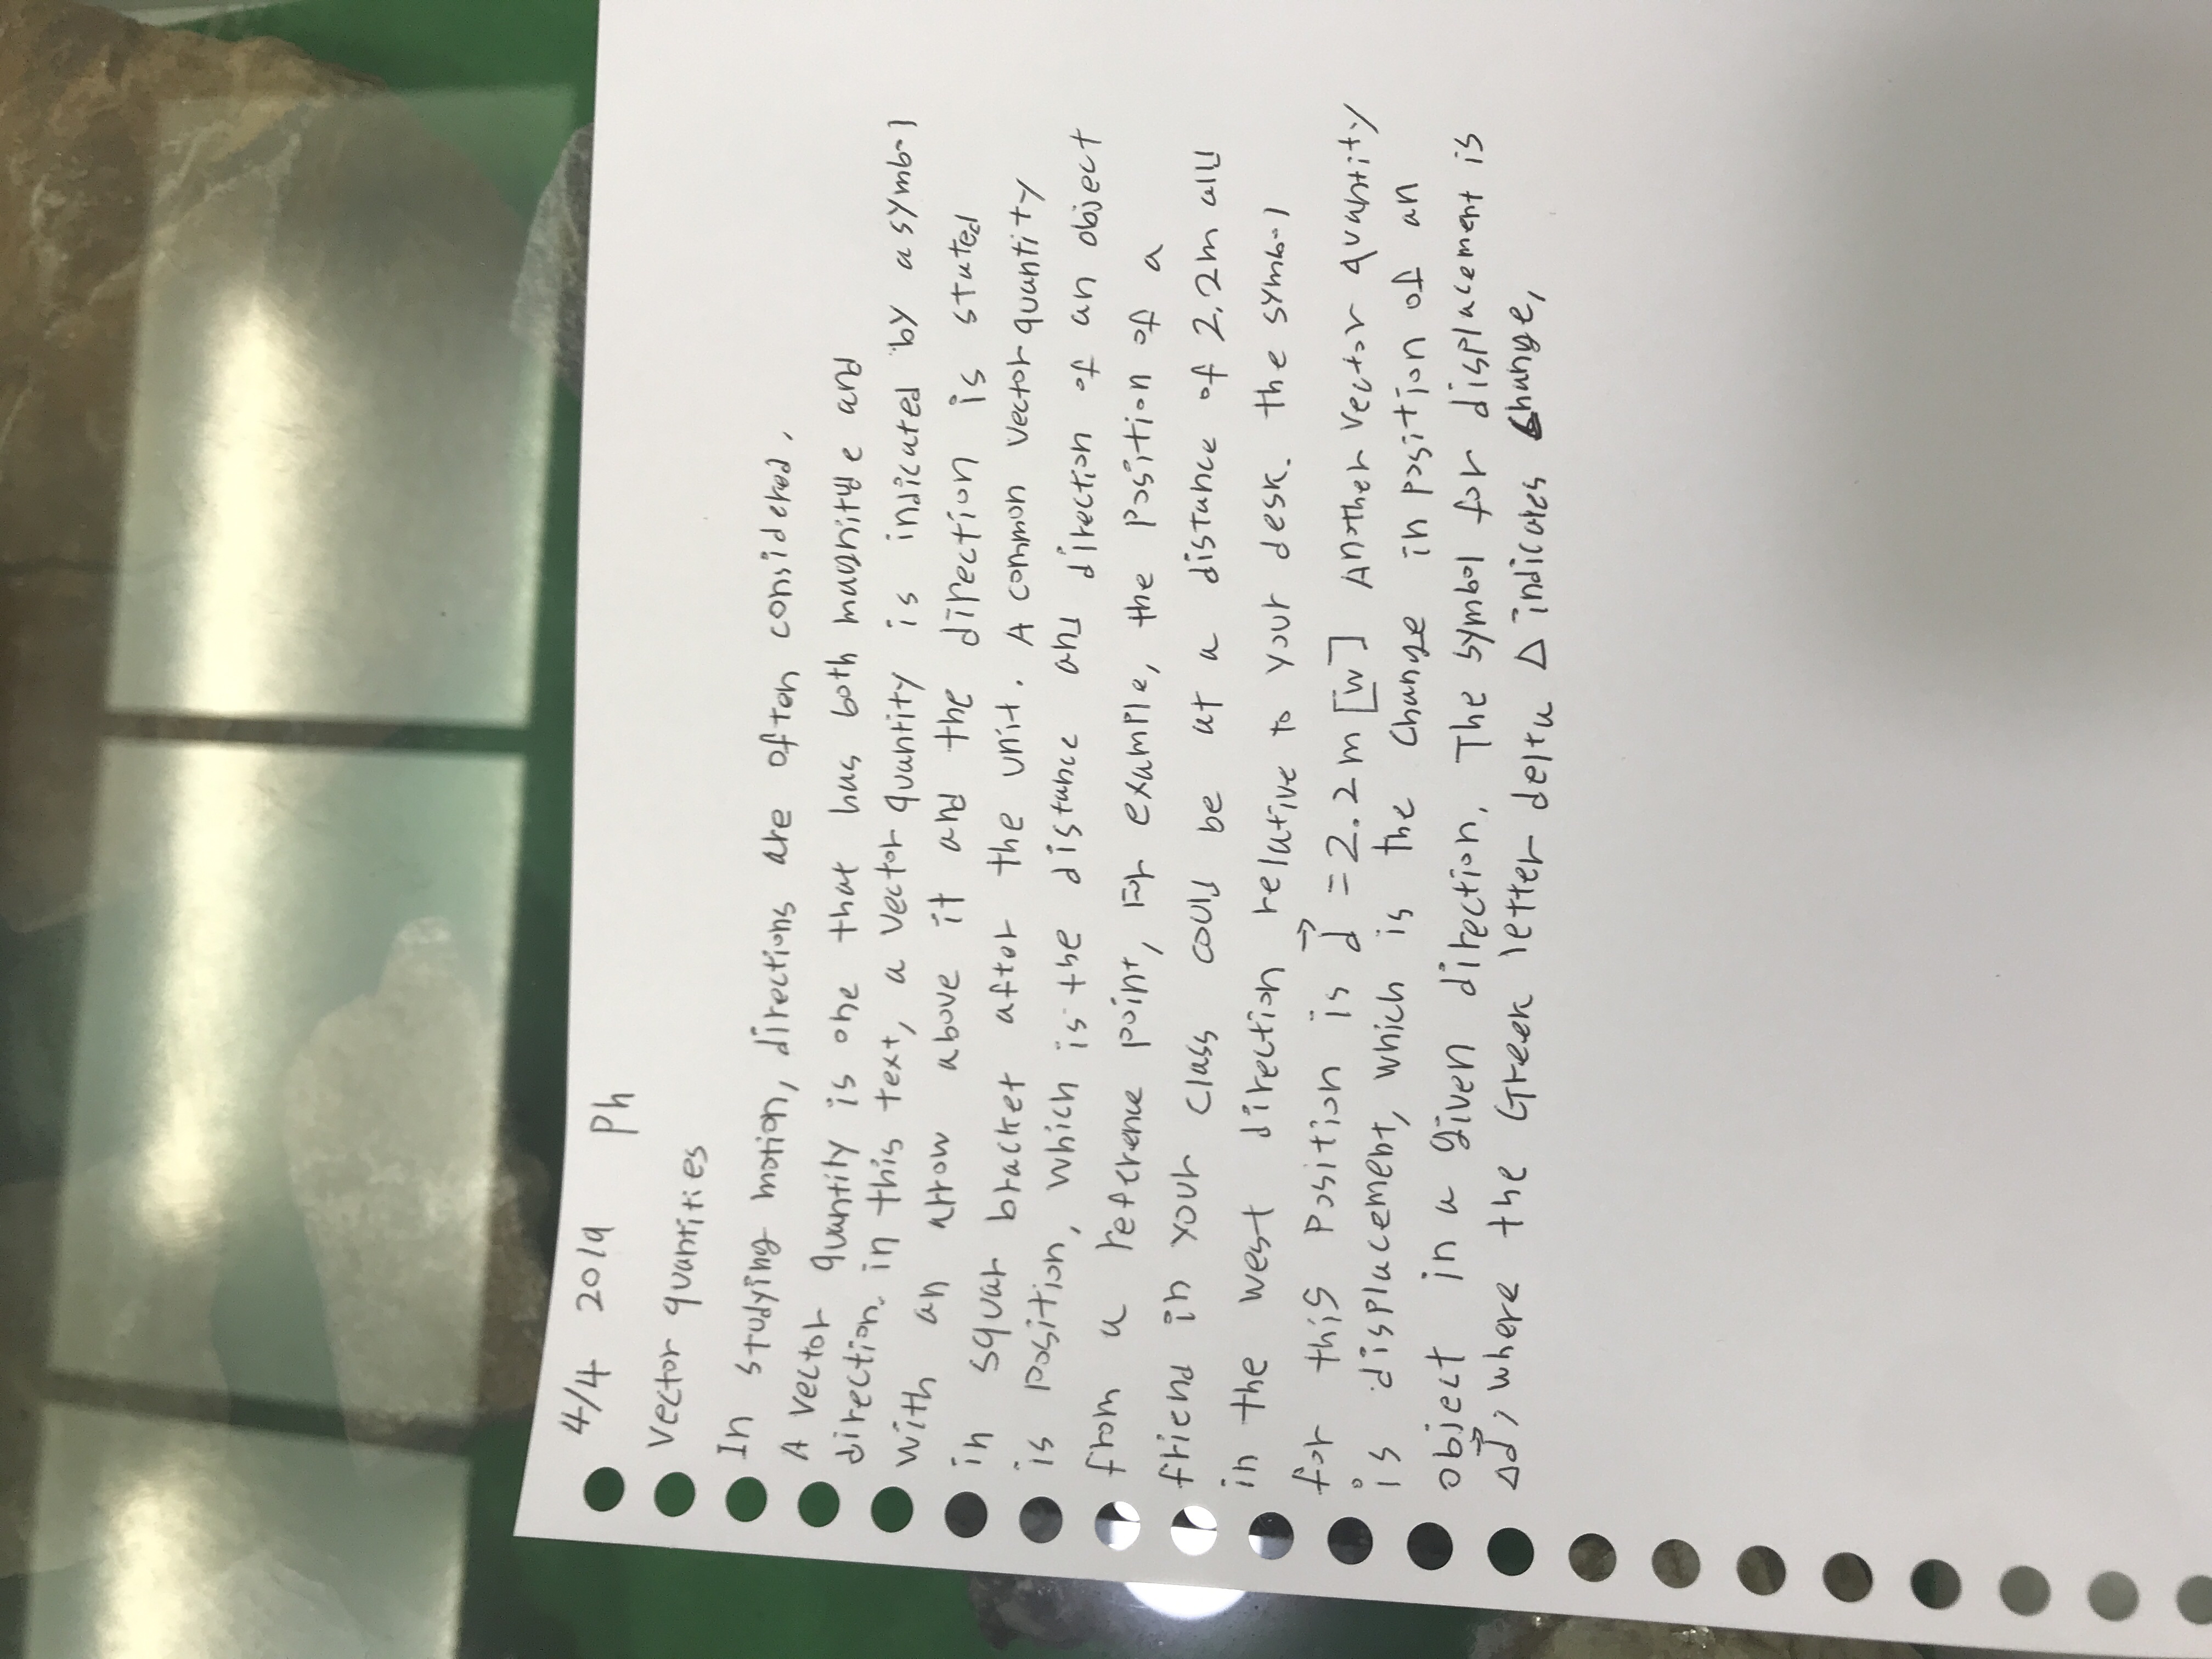 4/4 2019 Ph
Vector quantities
In studying motion, directions are ofton considered.
A vector quantity is one that has both magnitude and
direction. in this text, a vector quantity is indicated by a symbol
with an arrow above it and the direction is stated
in squar bracket after the unit. A common vector quantity
is position, which is the distance and direction of an object
from a reference point, For example, the position of a
friend in your class could be at a distance of 2.2m and
in the west direction relative to your desk. the symbol
for this position is d⃗ = 2.2m [W] Another vector quantity
is displacement, which is the change in position of an
object in a given direction. The symbol for displacement is
Δd⃗, where the Greek letter delta Δ indicates change,